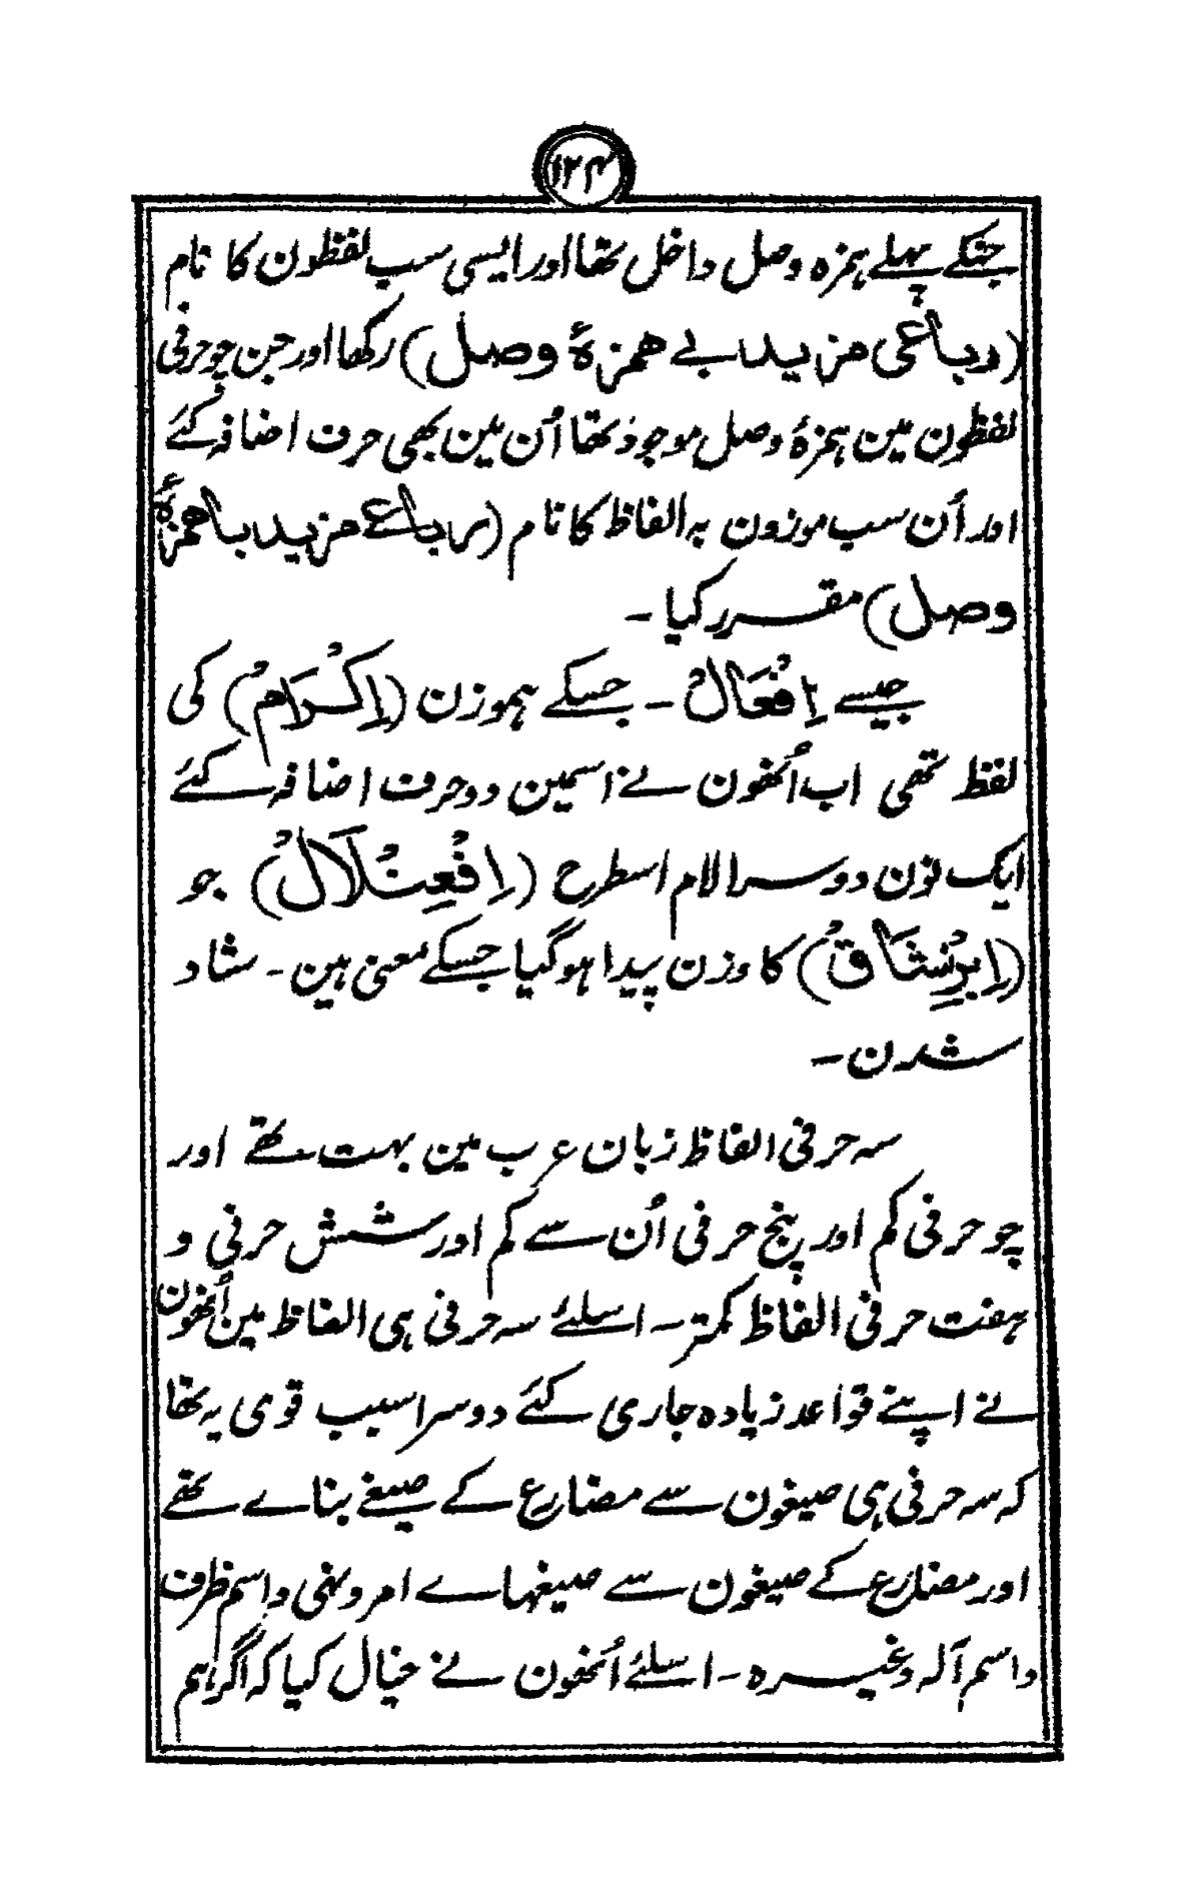 ۱۲۴
جنکے پہلے ہمزہ وصل داخل تھا اور ایسی سب لفظون کا نام
(رباعی مزید بے ہمزۂ وصل) رکھا اور جن چوحرفی
لفظون مین ہمزۂ وصل موجود تھا اُن مین بھی حرف اضافہ کئے
اور اُن سب موزون بہ الفاظ کا نام (رباعے مزید با ہمزۂ
وصل) مقرر کیا ۔
جیسے اِفْعَالْ ۔ جسکے ہموزن (اِکْرَامْ) کی
لفظ تھی اب اُنھون نے اسمین دو حرف اضافہ کئے
ایک نون دوسرا لام اسطرح (اِفْعِنْلَالْ) جو
(اِبْرِنْشَاقْ) کا وزن پیدا ہوگیا جسکے معنی ہین ۔ شاد
شدن ۔
سہ حرفی الفاظ زبان عرب مین بہت تھے اور
چو حرفی کم اور پنج حرفی اُن سے کم اور شش حرفی و
ہفت حرفی الفاظ کمتر ۔ اسلئے سہ حرفی ہی الفاظ مین اُنھون
نے اپنے قواعد زیادہ جاری کئے دوسرا سبب قوی یہ تھا
کہ سہ حرفی ہی صیغون سے مضارع کے صیغے بناے تھے
اور مضارع کے صیغون سے صیغہاے امر و نہی و اسم ظرف
و اسم آلہ وغیرہ ۔ اسلئے اُنھون نے خیال کیا کہ اگر ہم